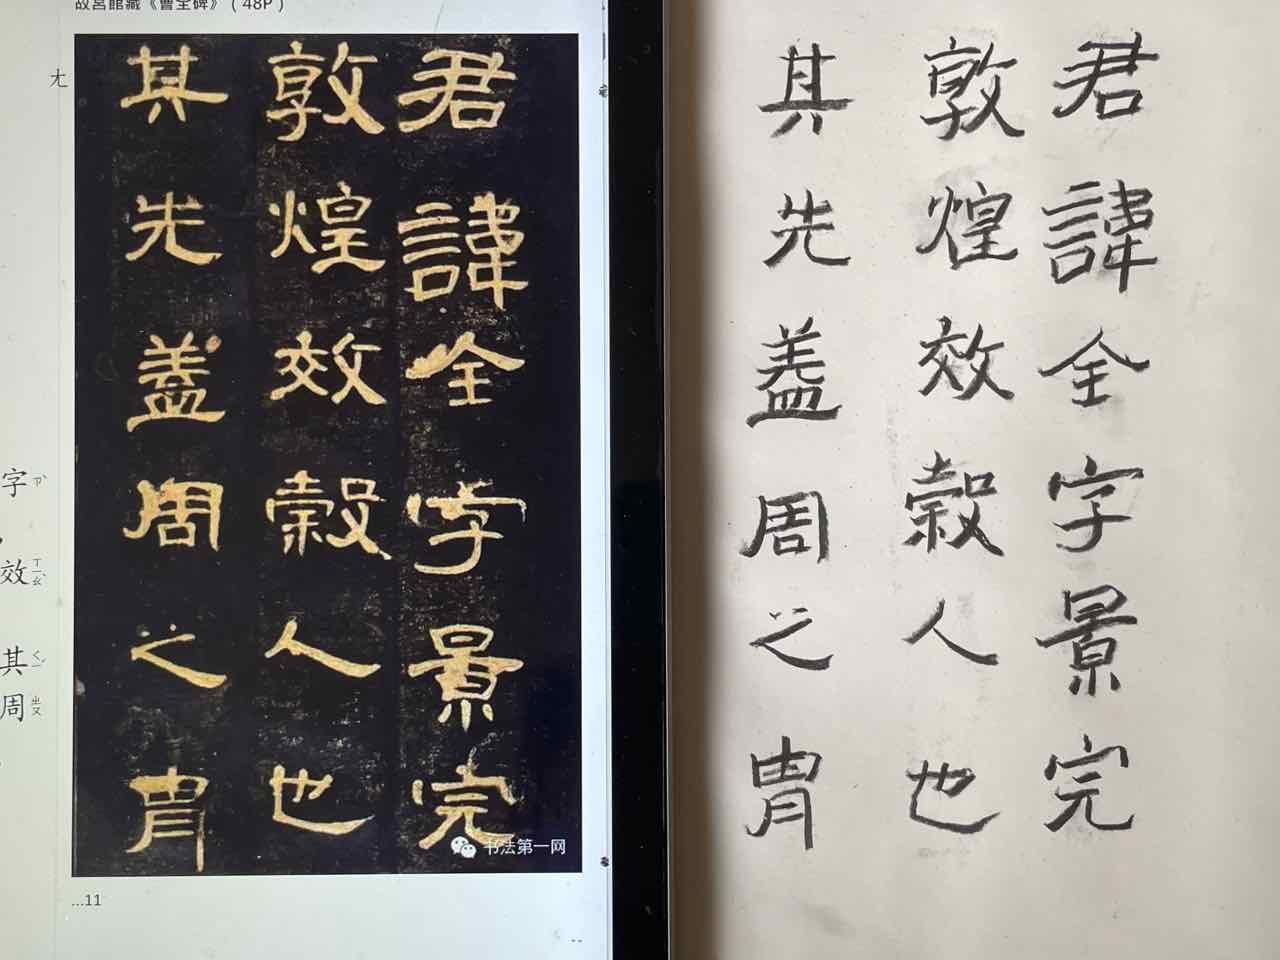 故宮館藏《曹全碑》(48P)
君諱全字景完
敦煌效穀人也
其先蓋周之冑
书法第一网
...11
尢
字ㄗˋ
效ㄒㄧㄠˋ
其ㄑㄧˊ
周ㄓㄡ
君諱全字景完
敦煌效穀人也
其先盖周之冑